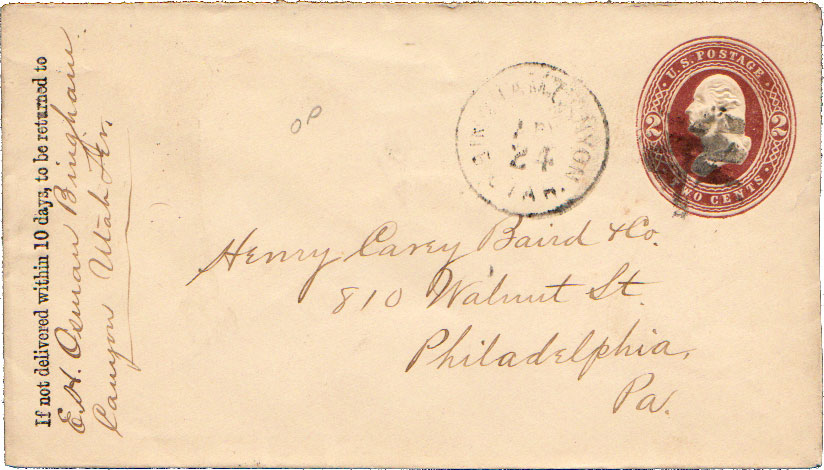 If not delivered within 10 days, to be returned to
E. H. Osman Bingham
Canyon Utah Ter.
OP
CANYON
24
UTAH.
U.S. POSTAGE
2 2
TWO CENTS
Henry Carey Baird & Co.
810 Walnut St.
Philadelphia,
Pa.